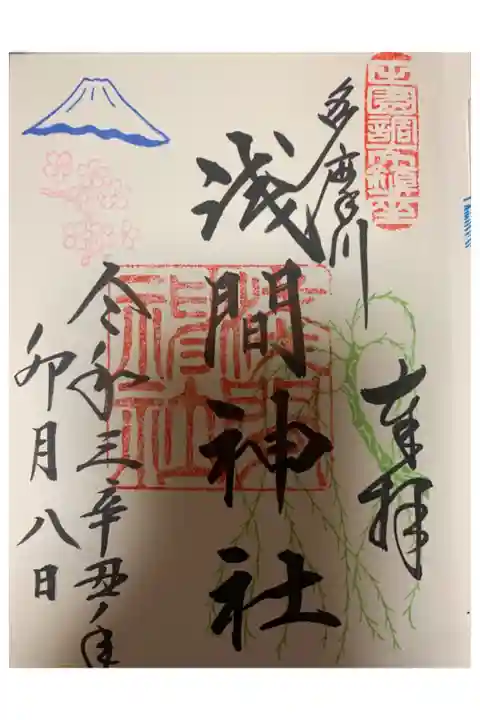 奉拝
多摩川
浅間神社
令和三辛丑年
卯月八日
浅間神社